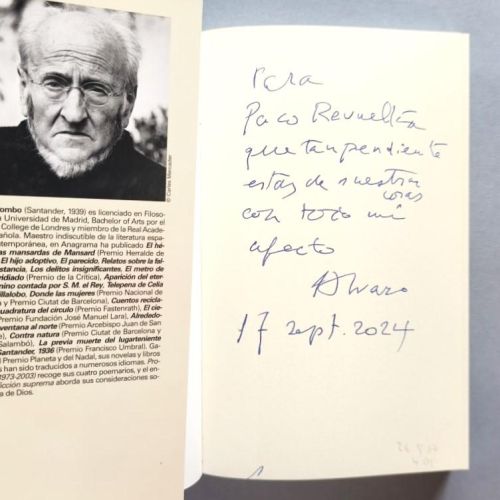 © Carles Mercader
ombo (Santander, 1939) es licenciado en Filoso-
a Universidad de Madrid, Bachelor of Arts por el
College de Londres y miembro de la Real Acade-
añola. Maestro indiscutible de la literatura espa-
temporánea, en Anagrama ha publicado El hé-
as mansardas de Mansard (Premio Herralde de
El hijo adoptivo, El parecido, Relatos sobre la fal-
stancia, Los delitos insignificantes, El metro de
ridiado (Premio de la Crítica), Aparición del eter-
nino contada por S. M. el Rey, Telepena de Celia
illalobo, Donde las mujeres (Premio Nacional de
a y Premio Ciudad de Barcelona), Cuentos recicla-
cuadratura del círculo (Premio Fastenrath), El cie-
emio Fundación José Manuel Lara), Alrededo-
ventana al norte (Premio Arcebispo Juan de San
e), Contra natura (Premio Ciutat de Barcelona y
Salambó), La previa muerte del lugarteniente
Santander, 1936 (Premio Francisco Umbral). Ga-
l Premio Planeta y del Nadal, sus novelas y libros
s han sido traducidos a numerosos idiomas. Pro-
1973-2003) recoge sus cuatro poemarios, y el en-
ficción suprema aborda sus consideraciones so-
a de Dios.
Para
Paco Revuelta
que tan pendiente
estás de nuestras
cosas
con todo mi
afecto
Alvaro
17 sept. 2024